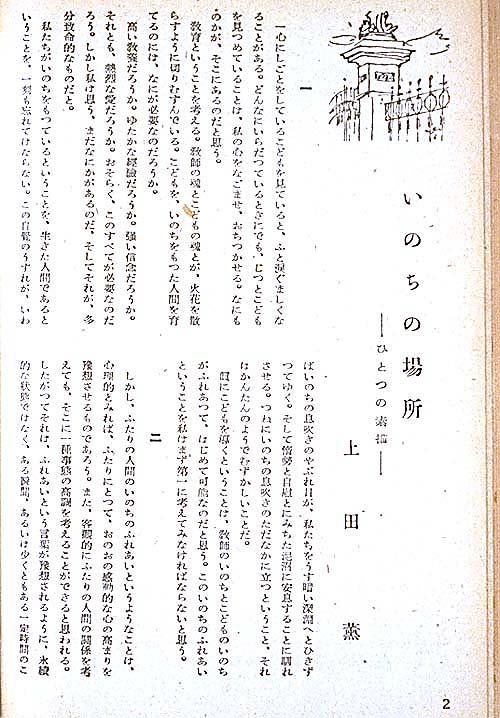 いのちの場所
――ひとつの素描――
上田薫
一
一心にしごとをしているこどもを見ていると、ふと涙ぐましくな
ることがある。どんなにいらだつているときにでも、じつとこども
を見つめていることは、私の心をなごませ、おちつかせる。なにも
のかが、そこにあるのだと思う。
教育ということを考える。教師の魂とこどもの魂とが、火花を散
らすように切りむすんでいる。こどもを、いのちをもつた人間を育
てるのには、なにが必要なのだろうか。
高い教養だろうか。ゆたかな經驗だろうか。強い信念だろうか。
それとも、熱烈な愛だろうか。おそらく、このすべてが必要なのだ
ろう。しかし私は思う、まだなにかがあるのだ、そしてそれが、多
分致命的なものだと。
私たちがいのちをもつているということを、生きた人間であると
いうことを、一刻も忘れてはならない。この自覺のうすれが、いわ
ばいのちの息吹きのやぶれ目が、私たちをうす暗い深淵へとひきず
つてゆく。そして怠勞と自慰とにみちた泥沼に安息することに馴れ
させる。つねにいのちの息吹きのただなかに立つということ、それ
はかんたんのようでむずかしいことだ。
眞にこどもを導くということは、教師のいのちとこどものいのち
がふれあつて、はじめて可能なのだと思う。このいのちのふれあい
ということを私はまず第一に考えてみなければならないと思う。
二
しかし、ふたりの人間のいのちのふれあいというようなことは、
心理的とみれば、ふたりにとつて、おのおの感動的な心の高まりを
豫想させるものであろう。また、客觀的にふたりの人間の關係を考
えても、そこに一種事態の高調を考えることができると思われる。
したがつてそれは、ふれあいという言葉が豫想されるように、永續
的な狀態ではなく、ある瞬間、あるいは少くともある一定時間のこ
2